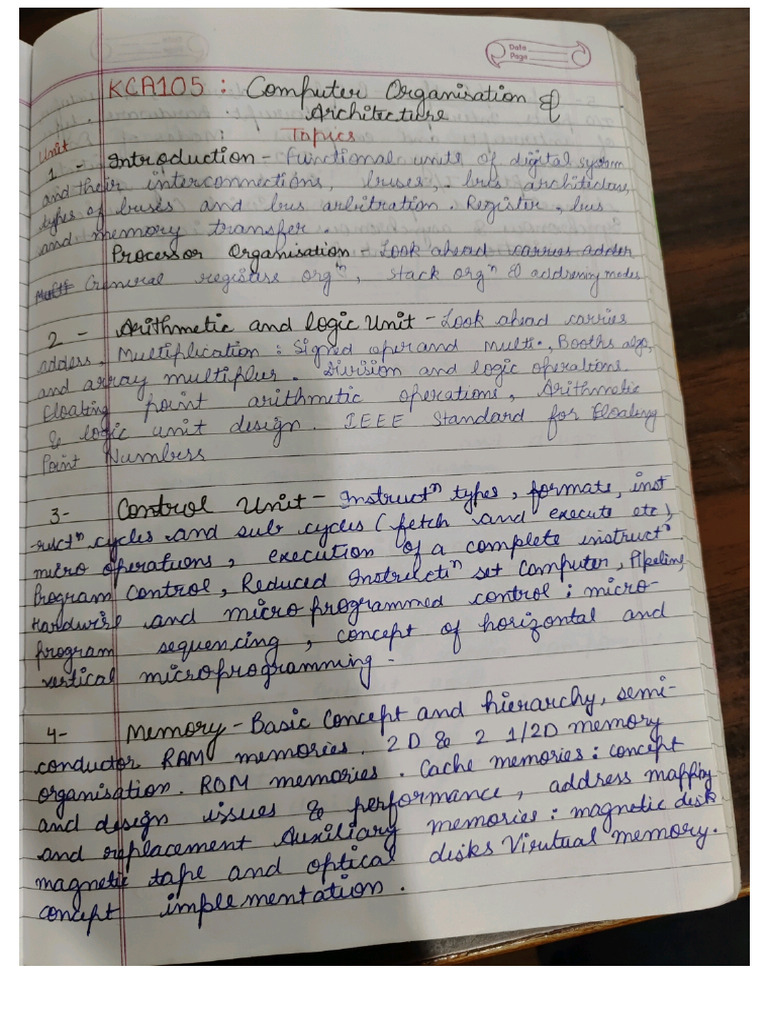 Date
Page
KCA105 : Computer Organisation &
Architecture
Unit Topics
1 - Introduction - Functional units of digital system
and their interconnections, buses, bus architecture,
types of buses and bus arbitration. Register, bus
and memory transfer.
Processor Organisation - Look ahead carries adder
General registers orgⁿ, stack orgⁿ & addressing modes
2 - Arithmetic and Logic Unit - Look ahead carries
adders, Multiplication : Signed operand multi., Booths algo,
and array multiplier. Division and logic operations.
Floating point arithmetic operations, Arithmetic
& logic unit design. IEEE Standard for Floating
Point Numbers
3 - Control Unit - Instructⁿ types, formats, inst
-ructⁿ cycles and sub cycles (fetch and execute etc)
micro operations, execution of a complete instructⁿ
Program Control, Reduced Instructiⁿ set Computer, Pipelining
Hardwire and micro programmed control : micro-
program sequencing, concept of horizontal and
vertical microprogramming -
4 - Memory - Basic Concept and hierarchy, semi-
conductor RAM memories. 2D & 2 1/2D memory
organisation. ROM memories. Cache memories : concept
and design issues & performance, address mapping
and replacement Auxiliary memories : magnetic disk
magnetic tape and optical disks Virutual memory.
concept implementation.